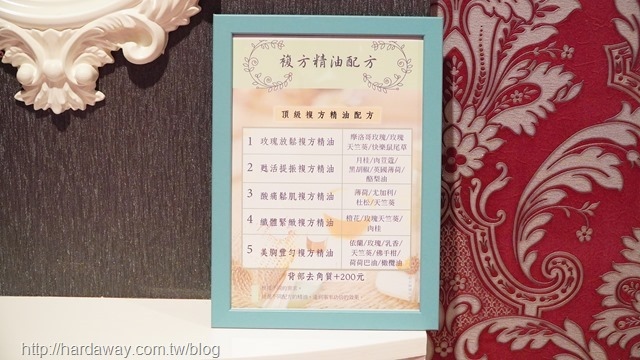 複方精油配方
頂級複方精油配方
1 玫瑰放鬆複方精油
摩洛哥玫瑰/玫瑰
天竺葵/快樂鼠尾草
2 甦活提振複方精油
月桂/肉荳蔻/
黑胡椒/英國薄荷/
酪梨油
3 酸痛鬆肌複方精油
薄荷/尤加利/
杜松/天竺葵
4 纖體緊緻複方精油
橙花/玫瑰天竺葵/
肉桂
5 美胸豐勻複方精油
依蘭/玫瑰/乳香/
天竺葵/佛手柑/
荷荷巴油/橄欖油
背部去角質+200元
http://hardaway.com.tw/blog